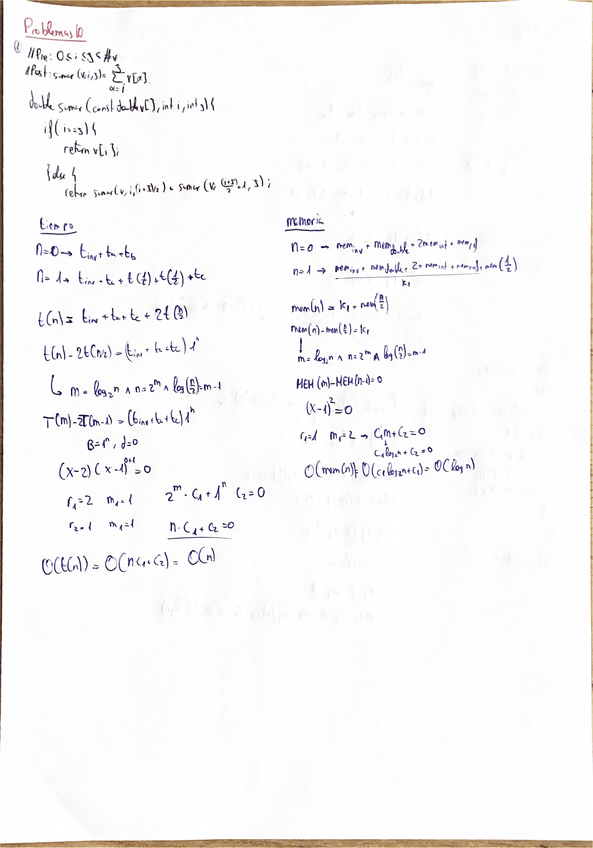 Problemas 10
① //Pre: 0 ≤ i ≤ j < #v
//Post: sumar(v,i,j) = Σ_{α=i}^{j} v[α].
double sumar (const double v[], int i, int j) {
if (i==j) {
return v[i];
} else {
return sumar(v, i, (i+j)/2) + sumar(v, (i+j)/2 + 1, j);
tiempo
n=0 → t_inv + ta + tb
n=1 → t_inv + ta + t(1/2) + t(1/2) + tc
t(n) = t_inv + ta + tc + 2t(n/2)
t(n) - 2t(n/2) = (t_inv + ta + tc) 1^n
↳ m = log₂n ∧ n=2^m ∧ log(n/2) = m-1
T(m) - 2T(m-1) = (t_inv + ta + tc) 1^n
B=1, d=0
(x-2)(x-1)^{0+1} = 0
r₁=2 m₁=1 2^m · c₁ + 1^n c₂ = 0
r₂=1 m₁=1 n·c₁ + c₂ = 0
O(t(n)) = O(n c₁ + c₂) = O(n)
memoria
n=0 → mem_inv + mem_double + 2mem_int + mem_ref
n=1 → mem_inv + mem_double + 2·mem_int + mem_ref + mem(1/2)
k₁
mem(n) = k₁ + mem(n/2)
mem(n) - mem(n/2) = k₁
↓
m = log₂n ∧ n=2^m ∧ log(n/2) = m-1
MEM(m) - MEM(m-1) = 0
(x-1)² = 0
r₁=1 m₁=2 → c₁m + c₂ = 0
↓
c₁log₂n + c₂ = 0
O(mem(n)) = O(c₁log₂n + c₂) = O(log n)